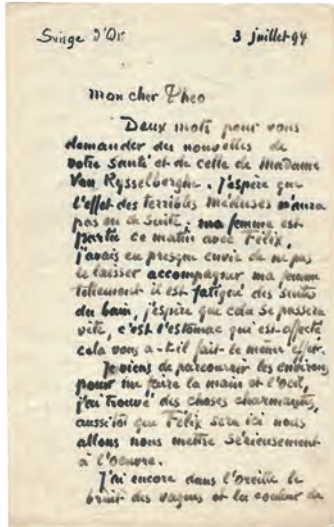 Suisge d'Or 3 juillet 94
mon cher Theo
Deux mots pour vous
demander des nouvelles de
votre santé et de celle de Madame
Van Rysselberghe. J'espère que
l'effet des terribles méduses n'aura
pas eu de suite; ma femme est
partie ce matin avec Félix,
j'avais eu presque envie de ne pas
le laisser accompagner ma femme
tellement il est fatigué des suites
du bain, j'espère que cela se passera
vite, c'est l'estomac qui est affecté
cela vous a-t-il fait le même effet.
Je viens de parcourir les environs
pour me faire la main et l'oeil,
j'ai trouvé des choses charmantes,
aussitot que Félix sera ici nous
allons nous mettre sérieusement
à l'oeuvre.
J'ai encore dans l'oreille le
bruit des vagues et la couleur de